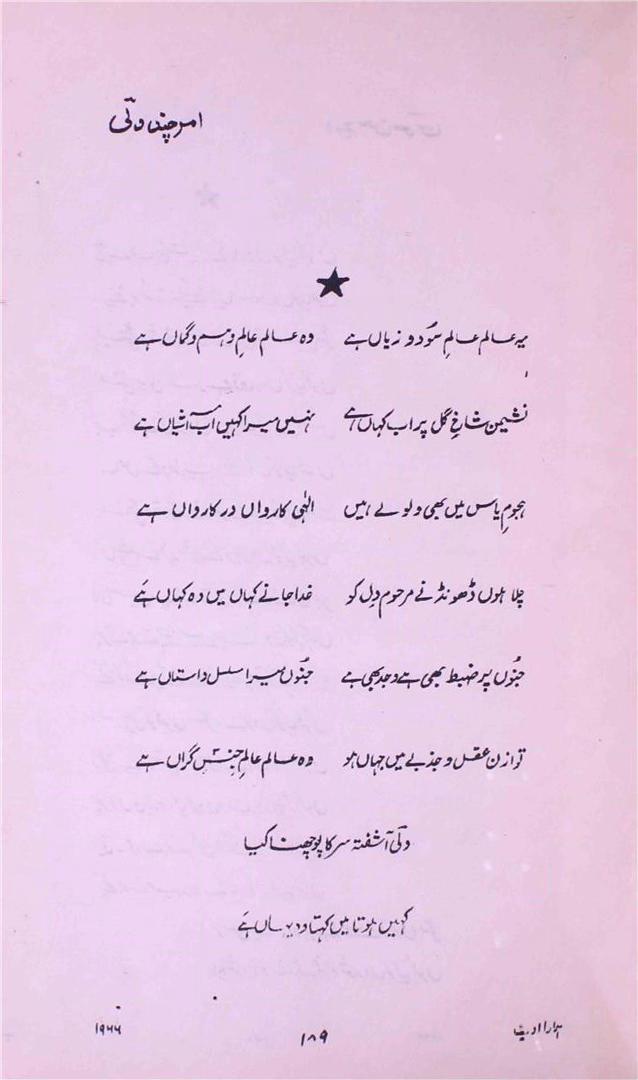 امر چند ولی
یہ عالم عالمِ سُود و زیاں ہے وہ عالم عالمِ وہم و گماں ہے
نشیمن شاخِ گل پر اب کہاں ہے نہیں میرا کہیں اب آشیاں ہے
ہجومِ یاس میں بھی ولولے ہیں الٰہی کارواں در کارواں ہے
چلا ہوں ڈھونڈنے مرحوم دِل کو خدا جانے کہاں میں وہ کہاں ہے
جنُوں پر ضبط بھی ہے وجد بھی ہے جنُوں میرا مسلسل داستاں ہے
توازن عقل و جذبے میں جہاں ہو وہ عالم عالمِ جنسِ گراں ہے
ولی آشفتہ سر کا پوچھنا کیا
کہیں ہوتا میں کہتا وہاں ہے
ہمارا ادب ۱۸۹ ۱۹۶۶